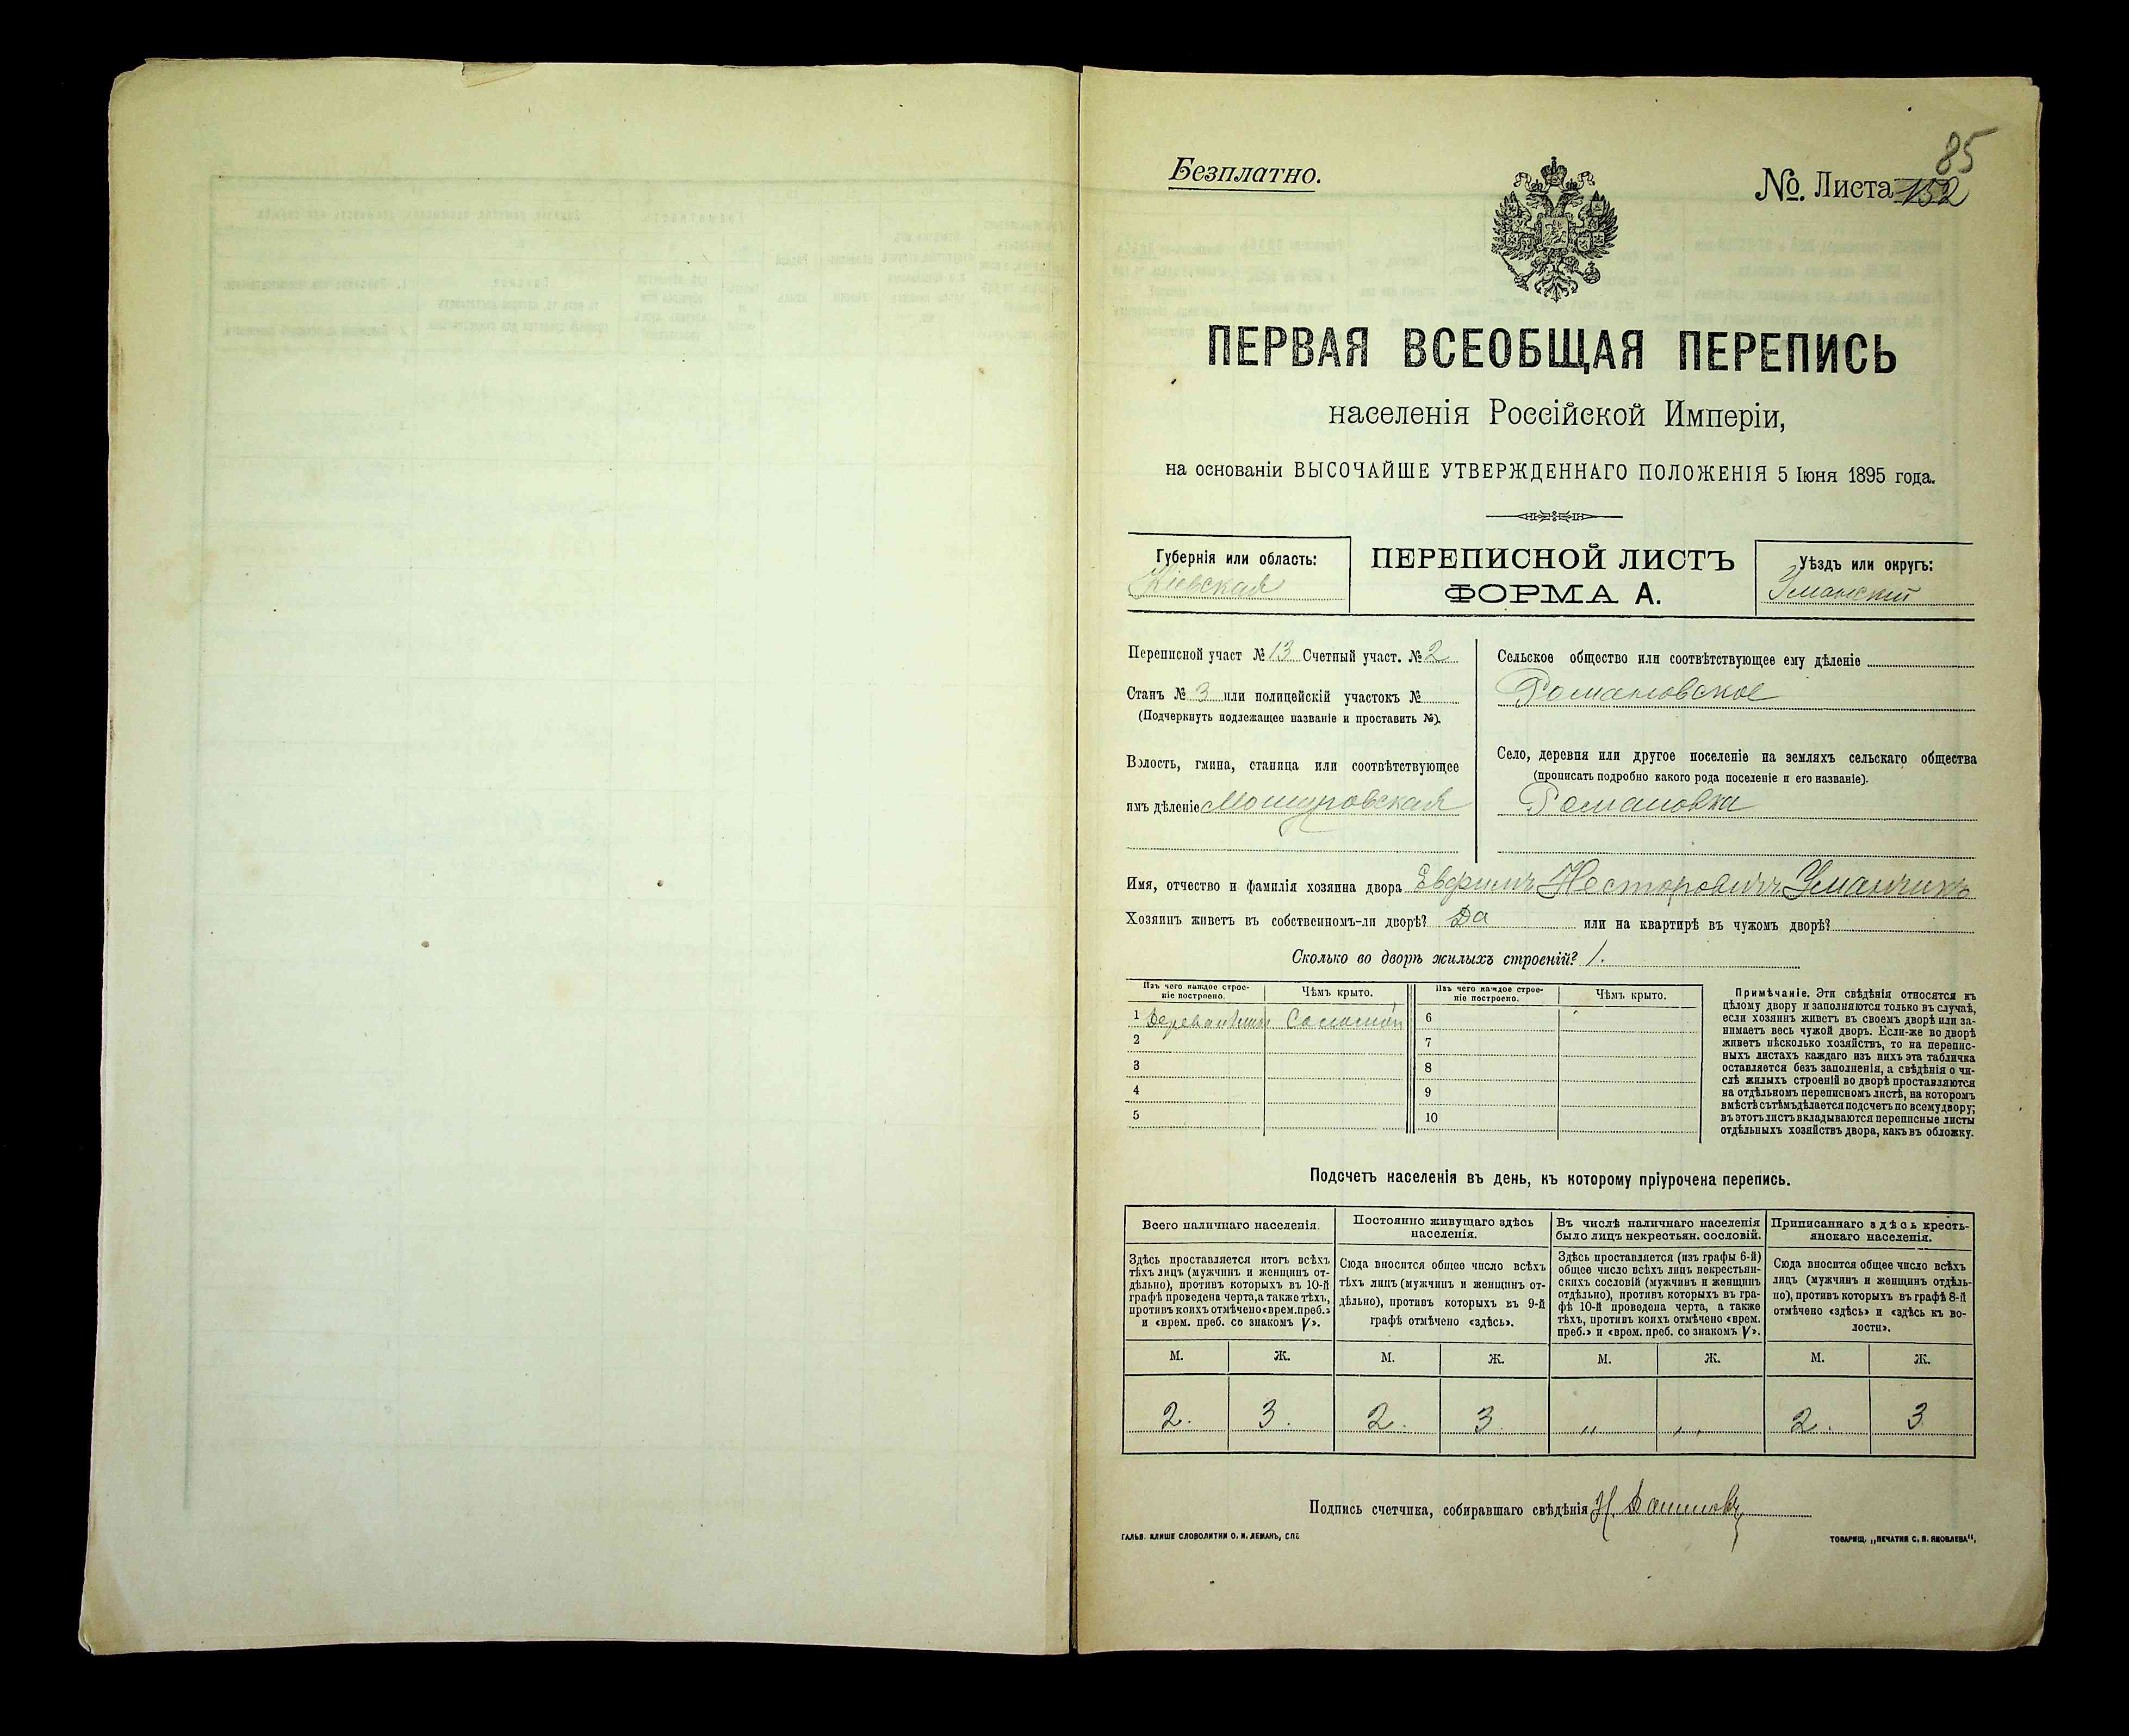 85
Безплатно.
№. Листа 152
ПЕРВАЯ ВСЕОБЩАЯ ПЕРЕПИСЬ
населенія Россійской Имперіи,
на основаніи ВЫСОЧАЙШЕ УТВЕРЖДЕННАГО ПОЛОЖЕНІЯ 5 Іюня 1895 года.
Губернія или область:
Кіевская
ПЕРЕПИСНОЙ ЛИСТЪ
ФОРМА А.
Уѣздъ или округъ:
Уманскій
Переписной участ № 13 Счетный участ. № 2
Станъ № 3 или полицейскій участокъ №
(Подчеркнуть подлежащее названіе и проставить №).
Волость, гмина, станица или соотвѣтствующее
имъ дѣленіе Мошуровская
Сельское общество или соотвѣтствующее ему дѣленіе
Романовское
Село, деревня или другое поселеніе на земляхъ сельскаго общества
(прописать подробно какого рода поселеніе и его названіе).
Романовка
Имя, отчество и фамилія хозяина двора Евфимъ Несторовичъ Уманчикъ
Хозяинъ живетъ въ собственномъ-ли дворѣ? Да или на квартирѣ въ чужомъ дворѣ?
Сколько во дворѣ жилыхъ строеній? 1.
Изъ чего каждое строе-
ніе построено.
Чѣмъ крыто.
Изъ чего каждое строе-
ніе построено.
Чѣмъ крыто.
1 Соломой 6
2 7
3 8
4 9
5 10
Примѣчаніе. Эти свѣдѣнія относятся къ
цѣлому двору и заполняются только въ случаѣ,
если хозяинъ живетъ въ своемъ дворѣ или за-
нимаетъ весь чужой дворъ. Если-же во дворѣ
живетъ нѣсколько хозяйствъ, то на перепис-
ныхъ листахъ каждаго изъ нихъ эта табличка
оставляется безъ заполненія, а свѣдѣнія о чи-
слѣ жилыхъ строеній во дворѣ проставляются
на отдѣльномъ переписномъ листѣ, на которомъ
вмѣстѣ съ тѣмъ дѣлается подсчетъ по всему двору;
въ этотъ листъ вкладываются переписные листы
отдѣльныхъ хозяйствъ двора, какъ въ обложку.
Подсчетъ населенія въ день, къ которому пріурочена перепись.
Всего наличнаго населенія.
Здѣсь проставляется итогъ всѣхъ
тѣхъ лицъ (мужчинъ и женщинъ от-
дѣльно), противъ которыхъ въ 10-й
графѣ проведена черта, а также тѣхъ,
противъ коихъ отмѣчено «врем. преб.»
и «врем. преб. со знакомъ V».
Постоянно живущаго здѣсь
населенія.
Сюда вносится общее число всѣхъ
тѣхъ лицъ (мужчинъ и женщинъ от-
дѣльно), противъ которыхъ въ 9-й
графѣ отмѣчено «здѣсь».
Въ числѣ наличнаго населенія
было лицъ некрестьян. сословій.
Здѣсь проставляется (изъ графы 6-й)
общее число всѣхъ лицъ некрестьян-
скихъ сословій (мужчинъ и женщинъ
отдѣльно), противъ которыхъ въ гра-
фѣ 10-й проведена черта, а также
тѣхъ, противъ коихъ отмѣчено «врем.
преб.» и «врем. преб. со знакомъ V».
Приписаннаго здѣсь кресть-
янскаго населенія.
Сюда вносится общее число всѣхъ
лицъ (мужчинъ и женщинъ отдѣль-
но), противъ которыхъ въ графѣ 8-й
отмѣчено «здѣсь» и «здѣсь къ во-
лости».
М. Ж. М. Ж. М. Ж. М. Ж.
2. 3. 2. 3. „ „ 2. 3
Подпись счетчика, собиравшаго свѣдѣнія
ГАЛЬВ. КЛИШЕ СЛОВОЛИТНИ О. И. ЛЕМАНЪ, СПБ
ТОВАРИЩ. „ПЕЧАТНЯ С. П. ЯКОВЛЕВА“.